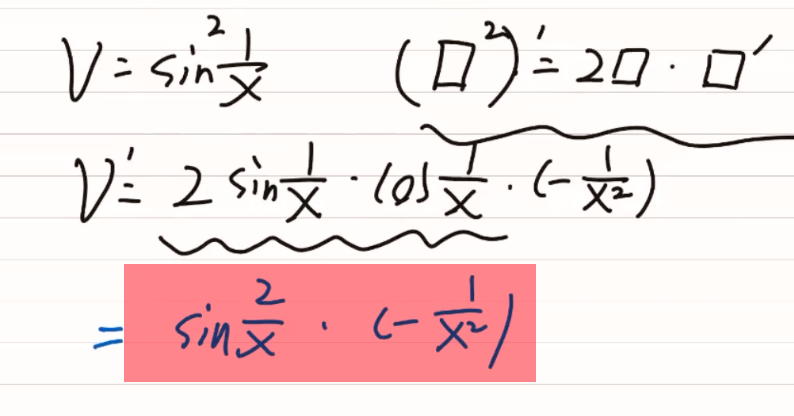 V = sin² 1/x (□²)' = 2□ · □'
V' = 2 sin 1/x · cos 1/x · (- 1/x²)
= sin 2/x · (- 1/x²)